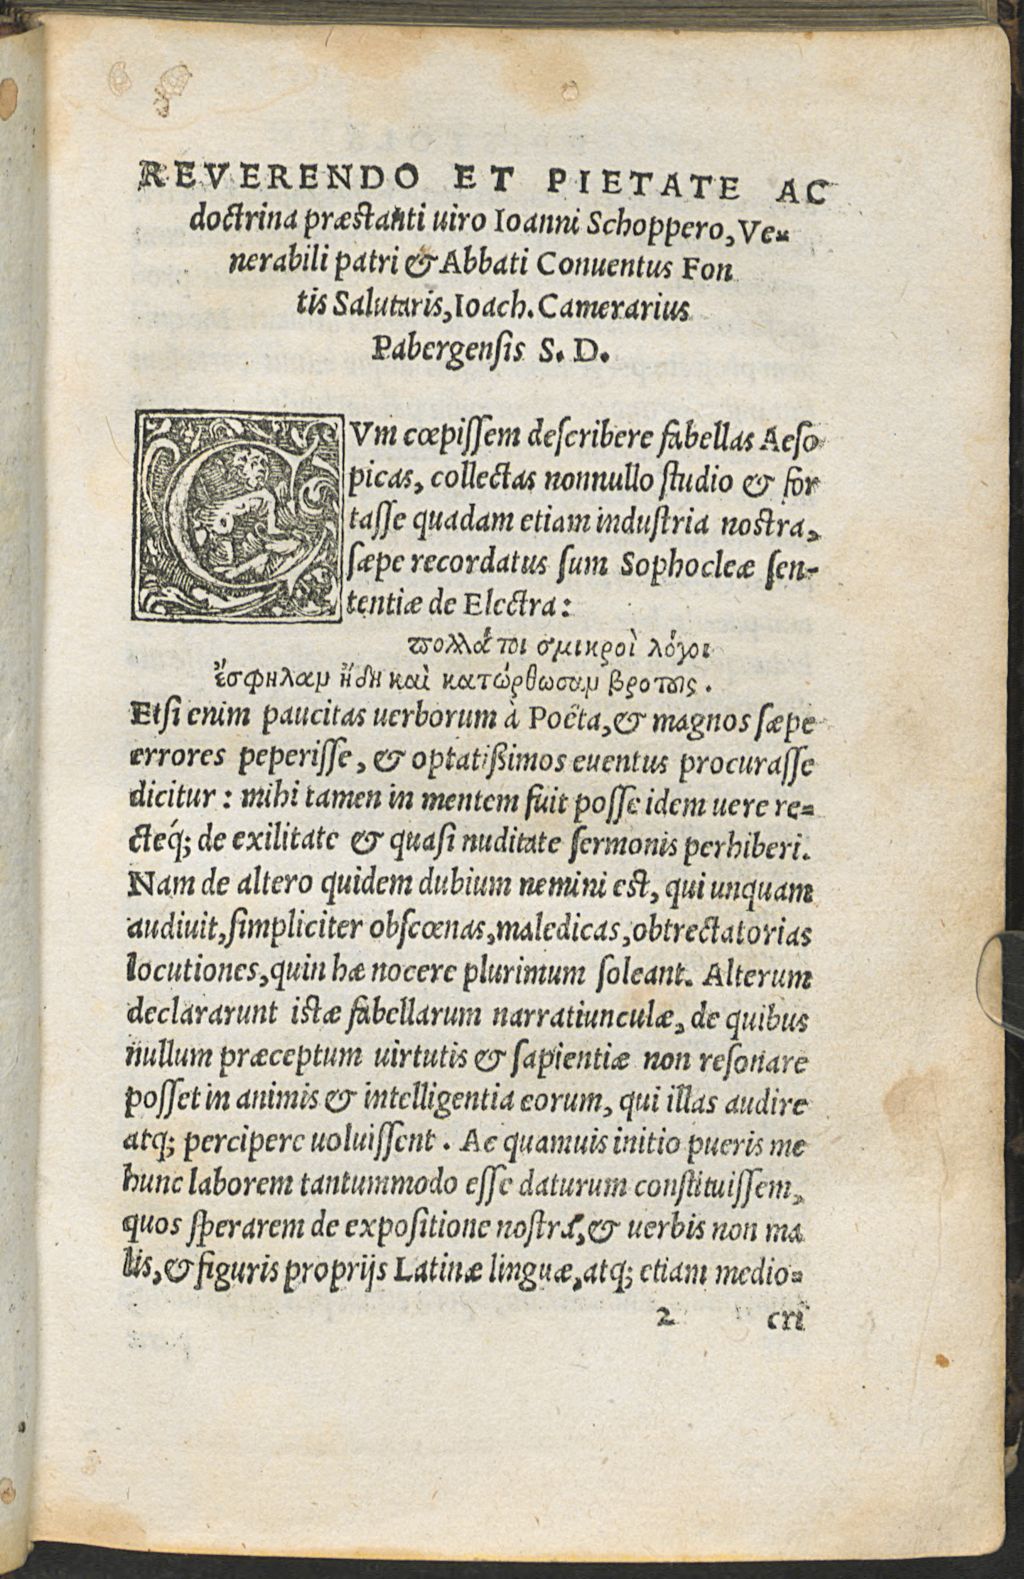 REVERENDO ET PIETATE AC
doctrina præstanti uiro Ioanni Schoppero, Ve-
nerabili patri & Abbati Conuentus Fon
tis Salutaris, Ioach. Camerarius
Pabergensis S. D.
CVm cœpissem describere fabellas Aeso
picas, collectas nonnullo studio & for
tasse quadam etiam industria nostra,
sæpe recordatus sum Sophocleæ sen-
tentiæ de Electra:
πολλά τοι σμικροὶ λόγοι
ἔσφηλαν ἤδη καὶ κατώρθωσαν βροτούς.
Etsi enim paucitas uerborum à Poëta, & magnos sæpe
errores peperisse, & optatißimos euentus procurasse
dicitur: mihi tamen in mentem fuit posse idem uere re-
cteq́; de exilitate & quasi nuditate sermonis perhiberi.
Nam de altero quidem dubium nemini est, qui unquam
audiuit, simpliciter obscœnas, maledicas, obtrectatorias
locutiones, quin hæ nocere plurimum soleant. Alterum
declararunt istæ fabellarum narratiunculæ, de quibus
nullum præceptum uirtutis & sapientiæ non resonare
posset in animis & intelligentia eorum, qui illas audire
atq; percipere uoluissent. Ac quamuis initio pueris me
hunc laborem tantummodo esse daturum constituissem,
quos sperarem de expositione nostra, & uerbis non ma
lis, & figuris proprijs Latinæ linguæ, atq; etiam medio-
2 cri